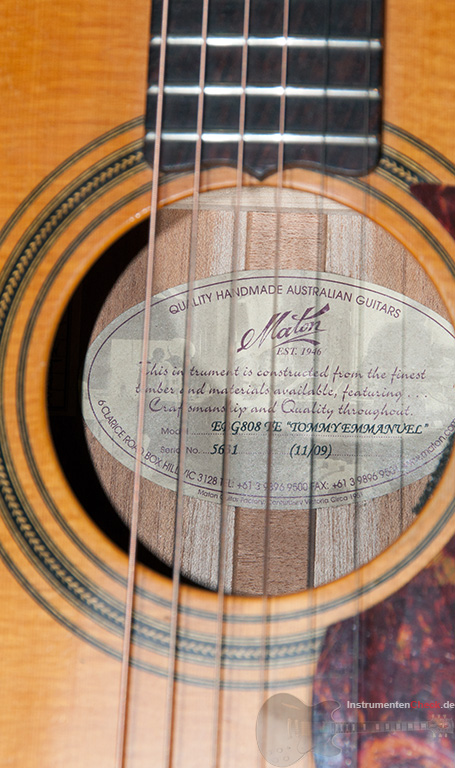 QUALITY HANDMADE AUSTRALIAN GUITARS
Maton
EST. 1946
This instrument is constructed from the finest
timber and materials available, featuring . . .
Craftsmanship and Quality throughout.
Model "TOMMY EMMANUEL"
Serial No. (11/09)
6 CLARICE ROAD BOX HILL VIC 3128 TEL: +61 3 9896 9500 FAX: +61 3 9896 9501 www.maton.com
Maton Guitar Factory Victoria Circa 1951
Instrumenten .de